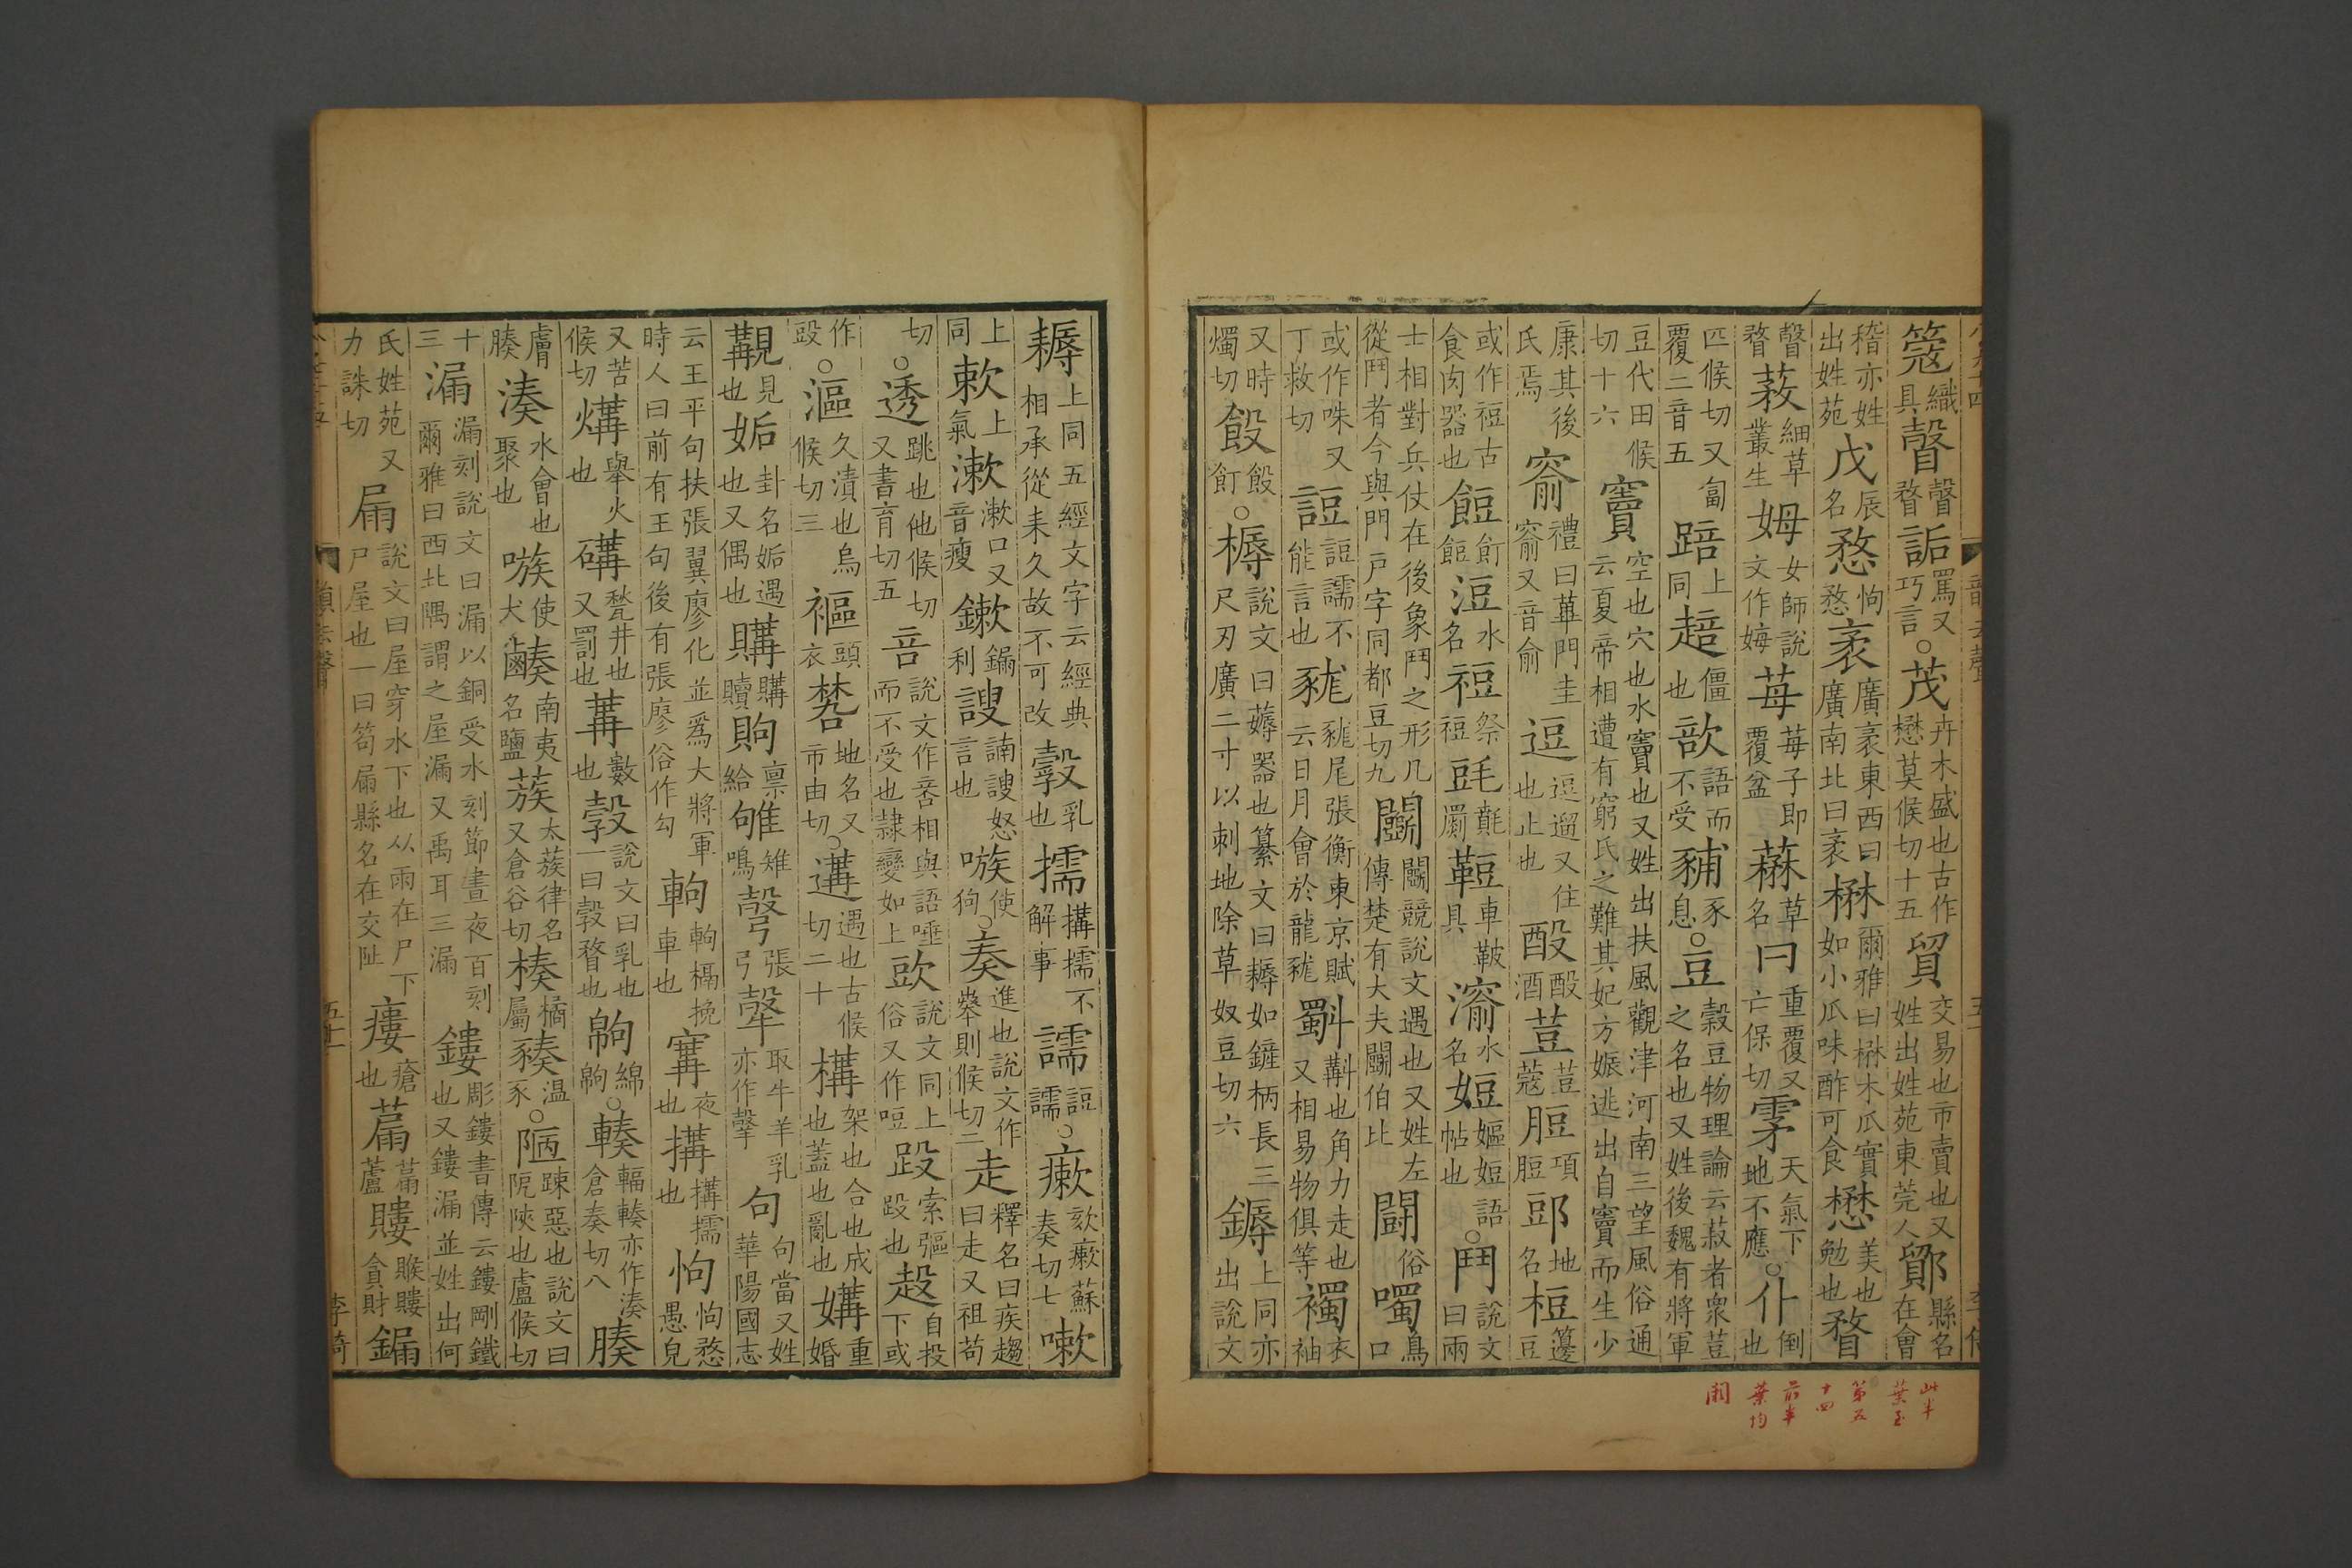 𥯔織具瞉瞉瞀詬罵又巧言○茂卉木盛也古作懋莫候切十五貿交易也市賣也又姓出姓苑東莞人鄮縣名在會
稽亦姓出姓苑戊辰名愗怐愗袤廣袤東西曰廣南北曰袤楙爾雅曰楙木瓜實如小瓜味酢可食懋美也勉也瞀
瞉瞀蓩細草叢生姆女師說文作娒莓莓子即覆盆菻草名冃重覆又亡保切雺天氣下地不應○仆倒也
匹候切又匐覆二音五踣上同䞳僵也㰯語而不受豧豕息○豆穀豆物理論云菽者衆荳之名也又姓後魏有將軍
豆代田候切十六竇空也穴也水竇也又姓出扶風觀津河南三望風俗通云夏帝相遭有窮氏之難其妃方娠逃出自竇而生少
康其後氏焉窬禮曰蓽門圭窬又音俞逗逗遛又住也止也酘酘酒荳荳蔻脰項脰郖地名梪籩豆
或作䇺古食肉器也餖飣餖浢水名䄈祭䄈毭毭㲮䩺車鞁具㵱水名㛒嫗㛒語帖也○鬥說文曰兩
士相對兵仗在後象鬥之形凡從鬥者今與門戶字同都豆切九鬬鬬競說文遇也又姓左傳楚有大夫鬬伯比鬭俗噣鳥口
或作咮又丁救切䛠䛠譳不能言也豵豵尾張衡東京賦云日月會於龍豵斣斠也角力走也又相易物俱等襡衣袖
又時燭切䬦䬦飣○槈說文曰薅器也纂文曰耨如鏟柄長三尺刃廣二寸以刺地除草奴豆切六鎒上同亦出說文
耨上同五經文字云經典相承從耒久故不可改㝅乳也擩搆擩不解事譳䛠譳○瘶欬瘶蘇奏切七嗽
上同欶上氣漱漱口又音瘦鏉鎩利謏誧謏怒言也嗾使狗○奏進也說文作㚅則候切二走釋名曰疾趨曰走又祖苟
切○透跳也他候切又書育切五咅說文作㕻相與語唾而不受也隸變如上㰯說文同上俗又作哣𨂁索彄𨂁也䞳自投下或
作𣪌○漚久漬也烏候切三䙔頭衣䓊地名又市由切○遘遇也古候切二十構架也合也成也蓋也亂也媾重婚
覯見也姤卦名姤遇也又偶也購購贖䝭禀給雊雉鳴彀張弓㝅取牛羊乳亦作㝅句句當又姓華陽國志
云王平句扶張翼廖化並爲大將軍時人曰前有王句後有張廖俗作勾軥軥槅挽車也冓夜也搆搆擩也怐怐愗愚皃
又苦候切煹舉火也䃓甃井也又罰也冓數也㝅說文曰乳也一曰㝅瞀也帿綿帿○輳輻輳亦作湊倉奏切八腠
膚腠湊水會也聚也嗾使犬䲆南夷名鹽蔟太蔟律名又倉谷切楱橘屬䐁豕○陋踈惡也說文曰阨陜也盧候切
十三漏漏刻說文曰漏以銅受水刻節晝夜百刻爾雅曰西北隅謂之屋漏又禹耳三漏鏤彫鏤書傳云鏤剛鐵也又鏤漏並姓出何
氏姓苑又力誅切屚說文曰屋穿水下也从雨在尸下尸屋也一曰笱屚縣名在交阯瘻瘡也䕡䕡蘆䝏䝭䝏貪財鏀
此半
葉至
第五
十四
前半
葉均
闕